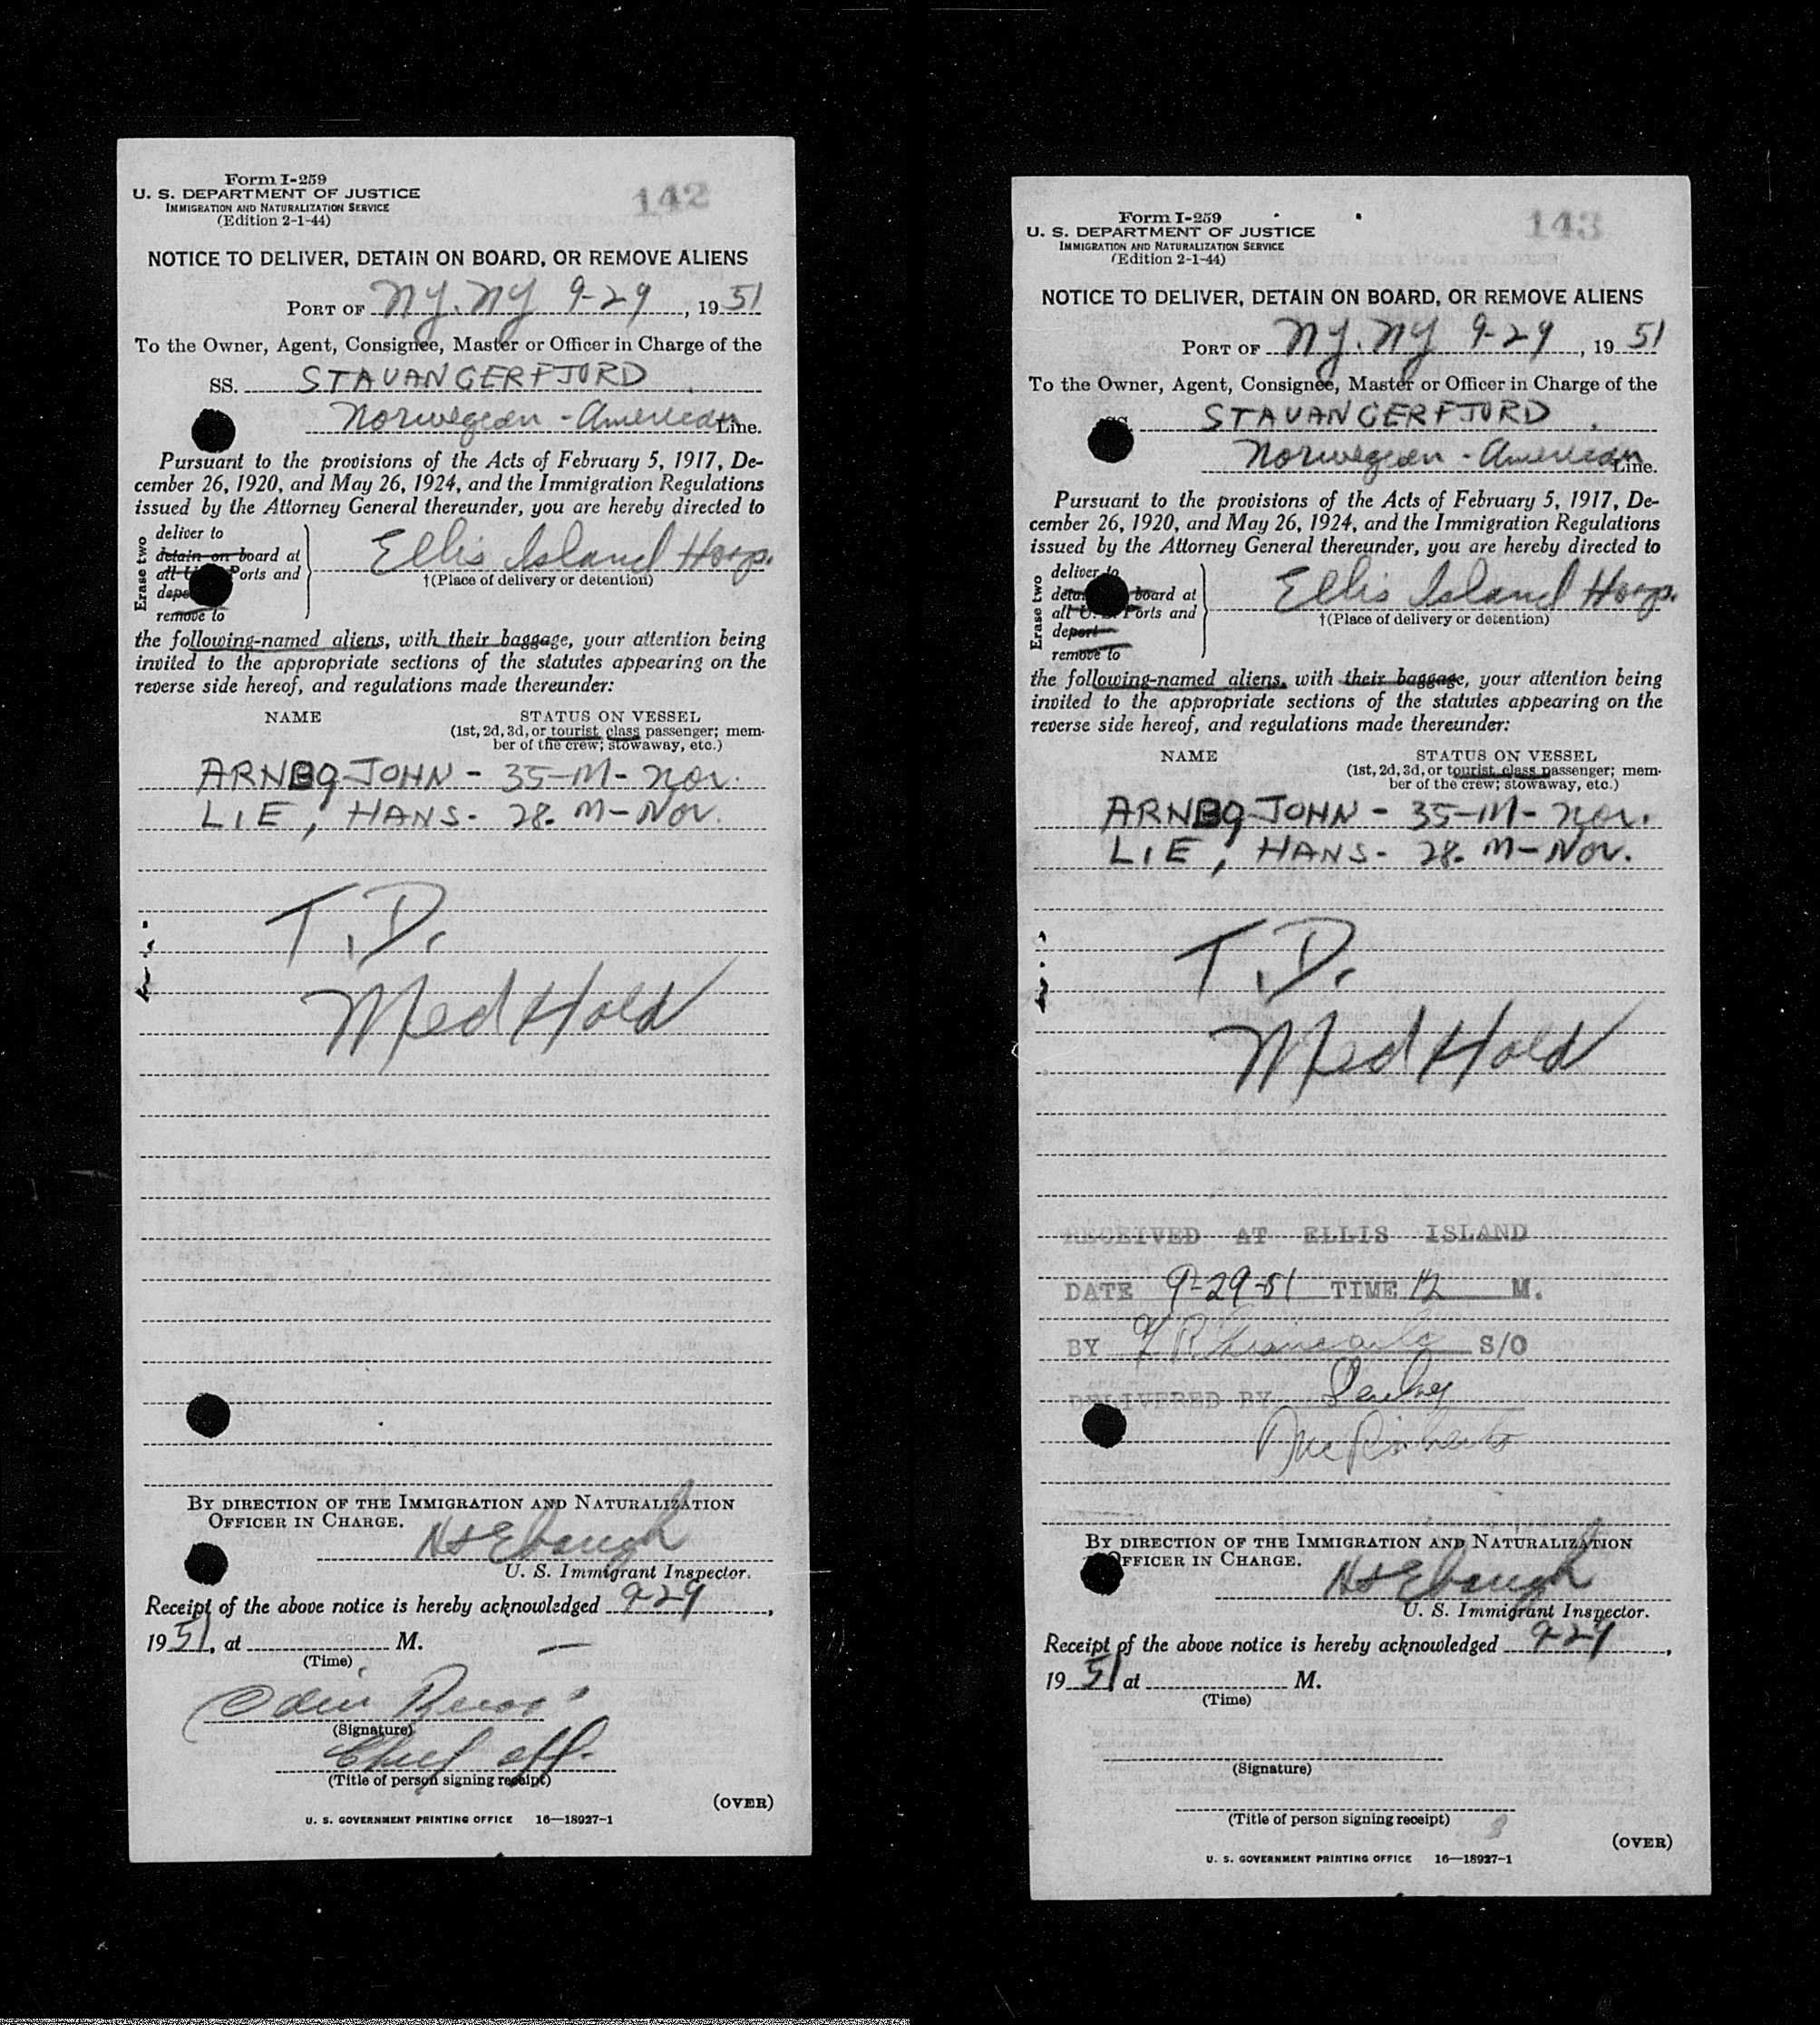 Form I-259
U. S. DEPARTMENT OF JUSTICE
IMMIGRATION AND NATURALIZATION SERVICE
(Edition 2-1-44)
142
NOTICE TO DELIVER, DETAIN ON BOARD, OR REMOVE ALIENS
PORT OF NY. NY 9-29, 1951
To the Owner, Agent, Consignee, Master or Officer in Charge of the
SS. STAVANGERFJORD
Norwegian - American Line.
Pursuant to the provisions of the Acts of February 5, 1917, De-
cember 26, 1920, and May 26, 1924, and the Immigration Regulations
issued by the Attorney General thereunder, you are hereby directed to
Erase two
deliver to
detain on board at
all U. Ports and
depo
remove to
Ellis Island Hosp.
†(Place of delivery or detention)
the following-named aliens, with their baggage, your attention being
invited to the appropriate sections of the statutes appearing on the
reverse side hereof, and regulations made thereunder:
NAME STATUS ON VESSEL
(1st, 2d, 3d, or tourist class passenger; mem-
ber of the crew; stowaway, etc.)
JOHN - 35-M- Nor.
LIE, HANS - 28. M-Nor.
T.D.
Med Hold
BY DIRECTION OF THE IMMIGRATION AND NATURALIZATION
OFFICER IN CHARGE.
Ebaugh
U. S. Immigrant Inspector.
Receipt of the above notice is hereby acknowledged 9-29,
1951, at M.
(Time)
(Signature)
Chief off.
(Title of person signing receipt)
(OVER)
U. S. GOVERNMENT PRINTING OFFICE 16—18927-1
Form I-259
U. S. DEPARTMENT OF JUSTICE
IMMIGRATION AND NATURALIZATION SERVICE
(Edition 2-1-44)
143
NOTICE TO DELIVER, DETAIN ON BOARD, OR REMOVE ALIENS
PORT OF NY. NY 9-29, 1951
To the Owner, Agent, Consignee, Master or Officer in Charge of the
STAVANGERFJORD
Norwegian - American Line.
Pursuant to the provisions of the Acts of February 5, 1917, De-
cember 26, 1920, and May 26, 1924, and the Immigration Regulations
issued by the Attorney General thereunder, you are hereby directed to
Erase two
deliver to
deta board at
all U. S. Ports and
deport
remove to
Ellis Island Hosp.
†(Place of delivery or detention)
the following-named aliens, with their baggage, your attention being
invited to the appropriate sections of the statutes appearing on the
reverse side hereof, and regulations made thereunder:
NAME STATUS ON VESSEL
(1st, 2d, 3d, or tourist class passenger; mem-
ber of the crew; stowaway, etc.)
JOHN - 35-M- Nor.
LIE, HANS - 28. M-Nor.
T.D.
Med Hold
RECEIVED AT ELLIS ISLAND
DATE 9-29-51 TIME 12 M.
BY S/O
DELIVERED BY
BY DIRECTION OF THE IMMIGRATION AND NATURALIZATION
OFFICER IN CHARGE.
Ebaugh
U. S. Immigrant Inspector.
Receipt of the above notice is hereby acknowledged 9-29,
1951 at M.
(Time)
(Signature)
(Title of person signing receipt)
(OVER)
U. S. GOVERNMENT PRINTING OFFICE 16—18927-1